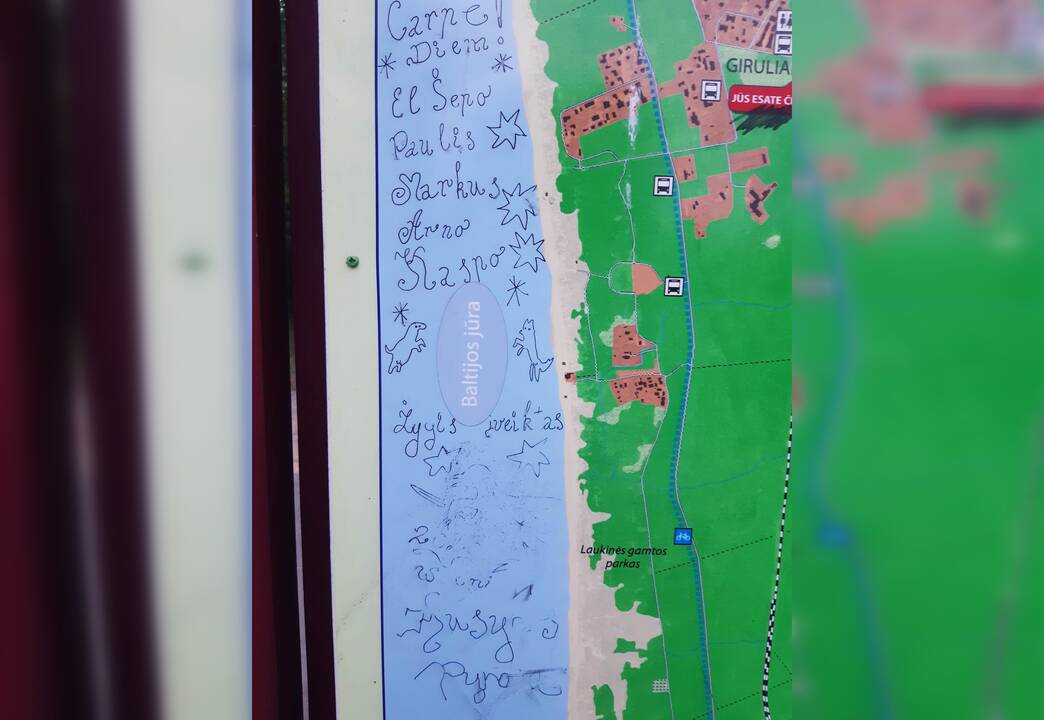 Carpe!
Diem!
El Šepo
Paulis
Markus
Arno
Kaspo
Baltijos jūra
Žygis įveiktas
GIRULIA
JŪS ESATE Č
Laukinės gamtos
parkas